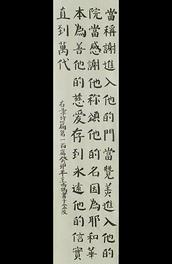 當稱謝進入他的門當贊美進入他的
院當感謝他稱頌他的名因為耶和華
本為善他的慈愛存到永遠他的信實
直到萬代
詩篇第一百篇癸卯年